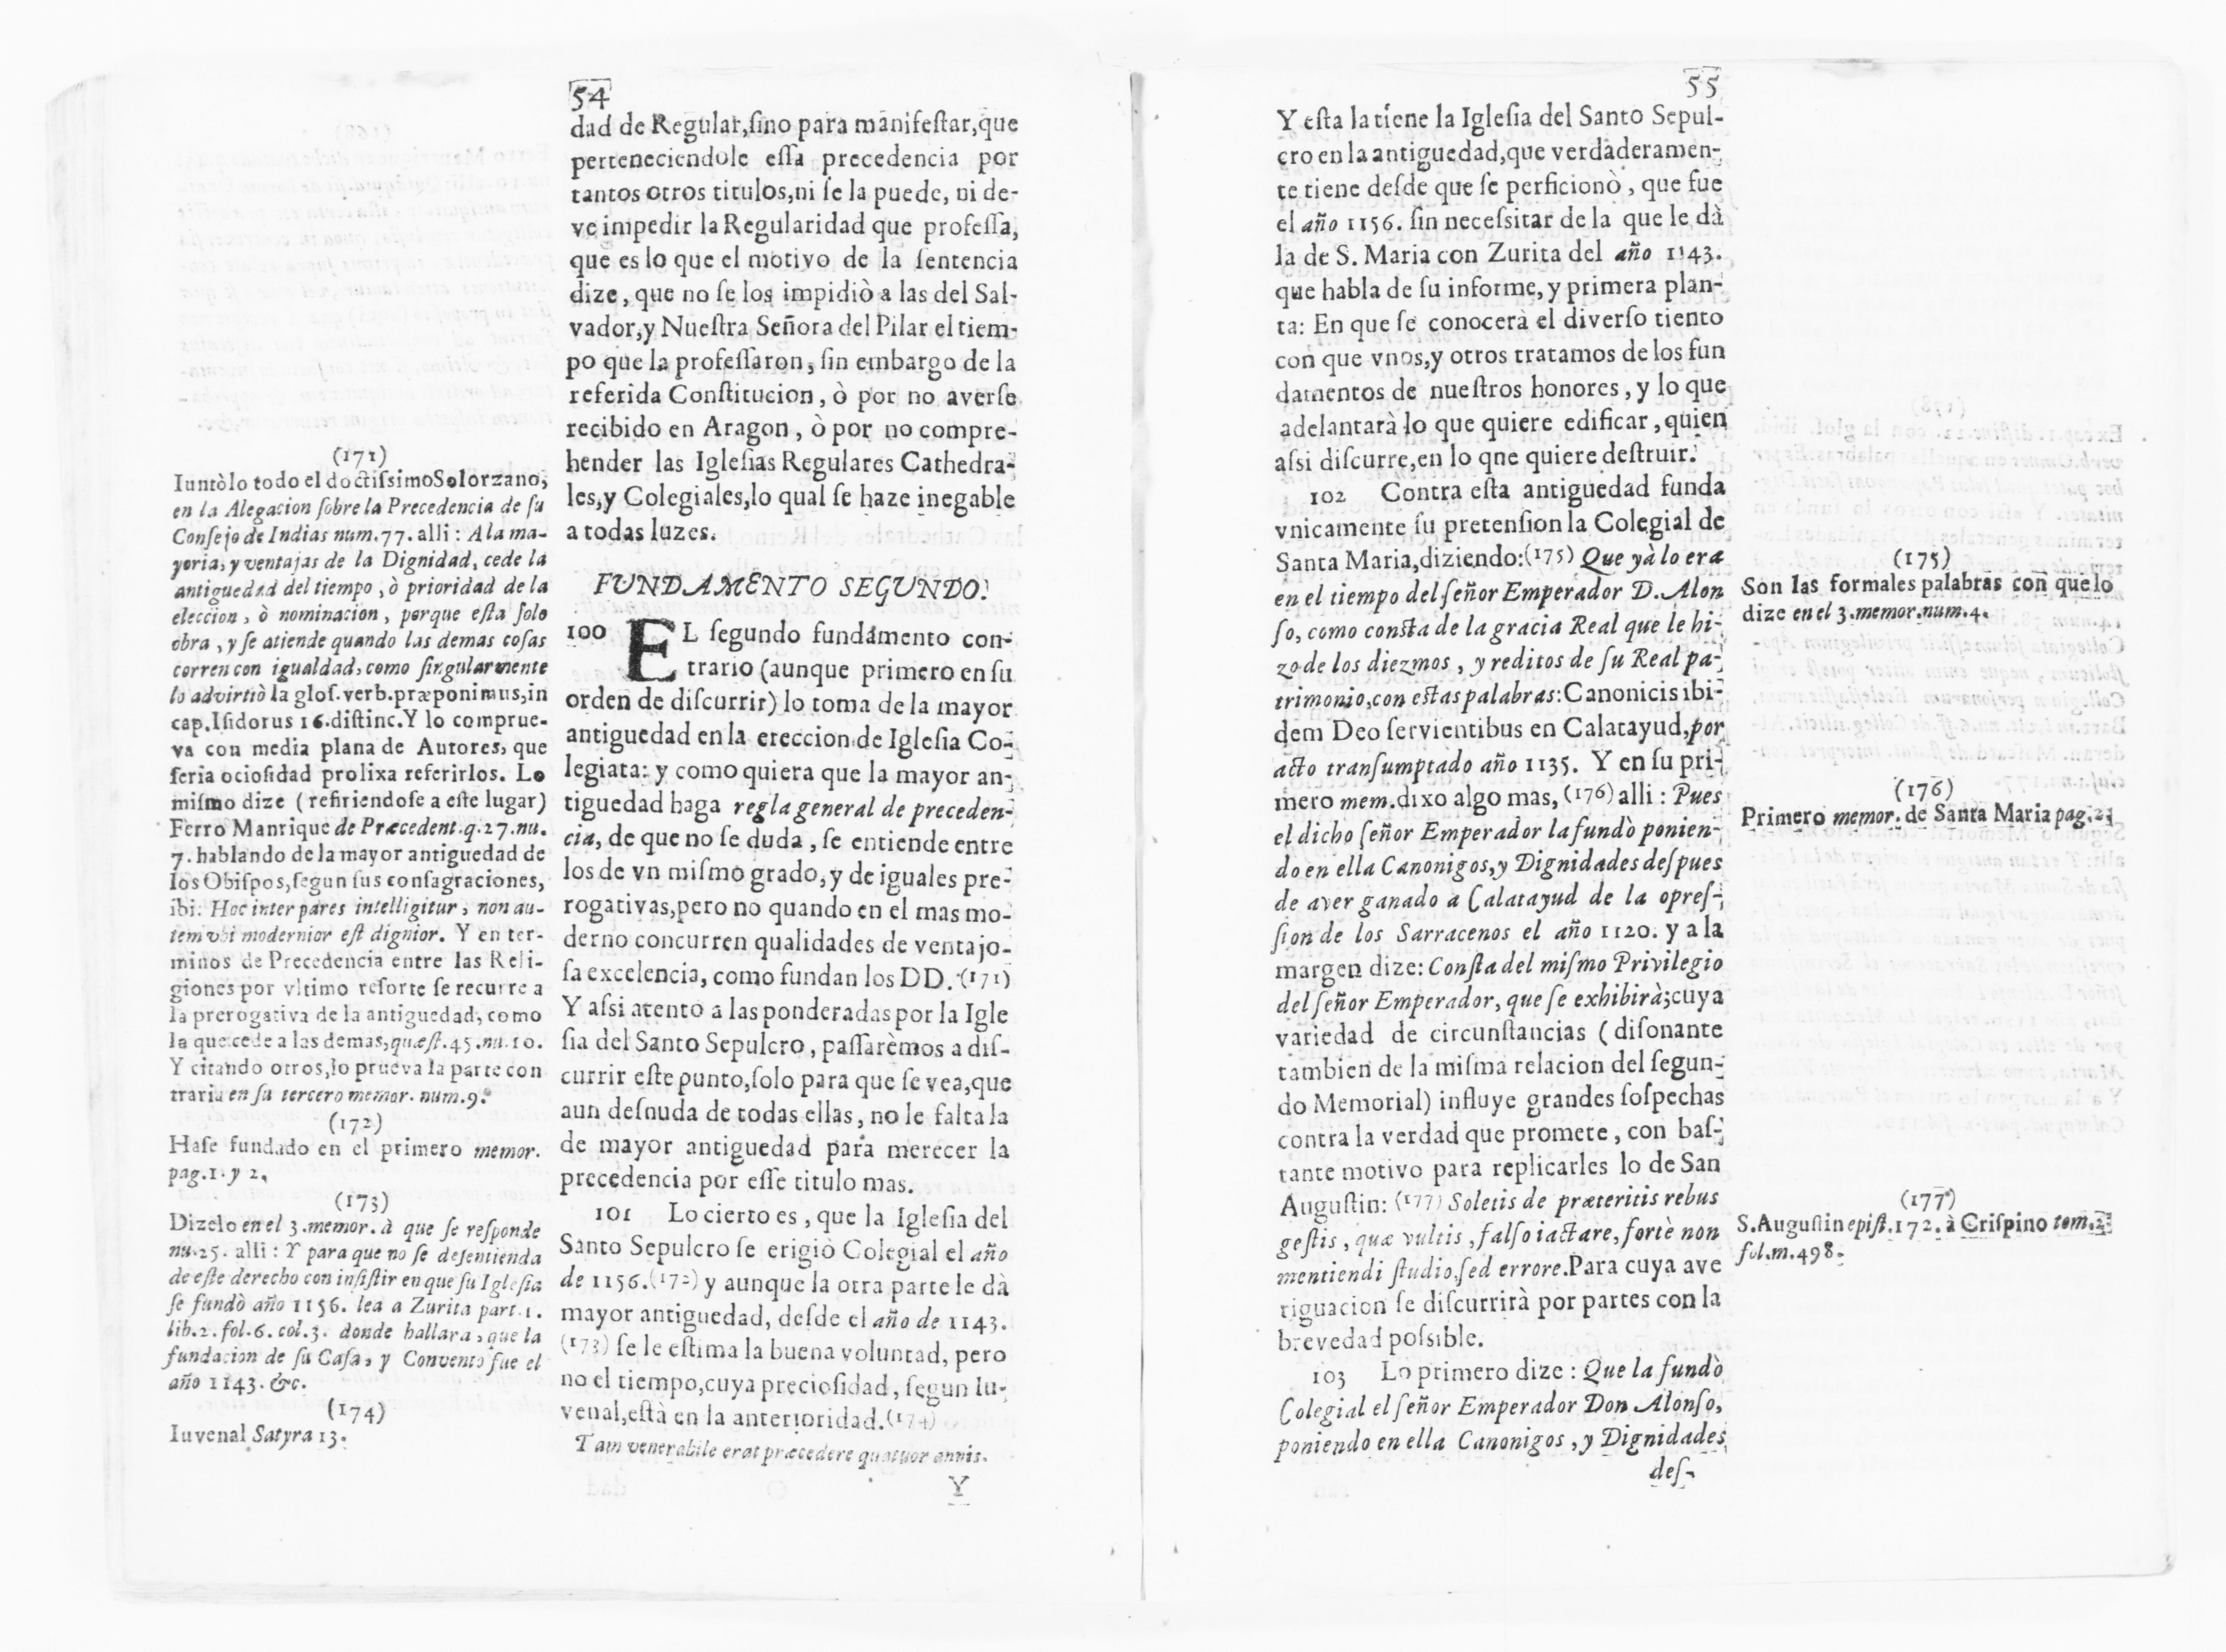 54
dad de Regular,ſino para manifeſtar,que
perteneciendole eſſa precedencia por
tantos otros titulos,ni ſe la puede, ni de-
ve impedir la Regularidad que profeſſa,
que es lo que el motivo de la ſentencia
dize, que no ſe los impidiò a las del Sal-
vador,y Nueſtra Señora del Pilar el tiem-
po que la profeſſaron, ſin embargo de la
referida Conſtitucion, ò por no averſe
recibido en Aragon, ò por no compre-
hender las Igleſias Regulares Cathedra-
les,y Colegiales,lo qual ſe haze inegable
a todas luzes.
FUNDAMENTO SEGUNDO.
100 EL ſegundo fundamento con-
trario (aunque primero en ſu
orden de diſcurrir) lo toma de la mayor
antiguedad en la ereccion de Igleſia Co-
legiata: y como quiera que la mayor an-
tiguedad haga regla general de preceden-
cia, de que no ſe duda, ſe entiende entre
los de vn miſmo grado, y de iguales pre-
rogativas,pero no quando en el mas mo-
derno concurren qualidades de ventajo-
ſa excelencia, como fundan los DD. (171)
Y aſsi atento a las ponderadas por la Igle
ſia del Santo Sepulcro, paſſarèmos a diſ-
currir eſte punto,ſolo para que ſe vea,que
aun deſnuda de todas ellas, no le falta la
de mayor antiguedad para merecer la
precedencia por eſſe titulo mas.
101 Lo cierto es, que la Igleſia del
Santo Sepulcro ſe erigiò Colegial el año
de 1156.(172) y aunque la otra parte le dà
mayor antiguedad, deſde el año de 1143.
(173) ſe le eſtima la buena voluntad, pero
no el tiempo,cuya precioſidad, ſegun Iu-
venal,eſtà en la anterioridad.(174)
Tam venerabile erat præcedere quatuor annis.
Y
(171)
Iuntòlo todo el doctiſsimo Solorzano,
en la Alegacion ſobre la Precedencia de ſu
Conſejo de Indias num.77. alli: A la ma-
yoria, y ventajas de la Dignidad, cede la
antiguedad del tiempo, ò prioridad de la
eleccion, ò nominacion, porque eſta ſolo
obra, y ſe atiende quando las demas coſas
corren con igualdad, como ſingularmente
lo advirtiò la gloſ. verb. præponimus, in
cap. Iſidorus 16. diſtinc. Y lo comprue-
va con media plana de Autores, que
ſeria ocioſidad prolixa referirlos. Lo
miſmo dize (refiriendoſe a eſte lugar)
Ferro Manrique de Præcedent. q.27. nu.
7. hablando de la mayor antiguedad de
los Obiſpos, ſegun ſus conſagraciones,
ibi: Hoc inter pares intelligitur, non au-
tem vbi modernior eſt dignior. Y en ter-
minos de Precedencia entre las Reli-
giones por vltimo reſorte ſe recurre a
la prerogativa de la antiguedad, como
la que cede a las demas, quæſt.45. nu.10.
Y citando otros, lo prueva la parte con
traria en ſu tercero memor. num.9.
(172)
Haſe fundado en el primero memor.
pag.1. y 2.
(173)
Dizelo en el 3. memor. à que ſe reſponde
nu.25. alli: Y para que no ſe deſentienda
de eſte derecho con inſiſtir en que ſu Igleſia
ſe fundò año 1156. lea a Zurita part.1.
lib.2. fol.6. col.3. donde hallara, que la
fundacion de ſu Caſa, y Convento fue el
año 1143. &c.
(174)
Iuvenal Satyra 13.
55
Y eſta la tiene la Igleſia del Santo Sepul-
cro en la antiguedad,que verdaderamen-
te tiene deſde que ſe perficionò, que fue
el año 1156. ſin neceſsitar de la que le dà
la de S. Maria con Zurita del año 1143.
que habla de ſu informe, y primera plan-
ta: En que ſe conocerà el diverſo tiento
con que vnos,y otros tratamos de los fun
damentos de nueſtros honores, y lo que
adelantarà lo que quiere edificar, quien
aſsi diſcurre,en lo qne quiere deſtruir.
102 Contra eſta antiguedad funda
vnicamente ſu pretenſion la Colegial de
Santa Maria,diziendo:(175) Que yà lo era
en el tiempo del ſeñor Emperador D. Alon
ſo, como conſta de la gracia Real que le hi-
zo de los diezmos, y reditos de ſu Real pa-
trimonio,con eſtas palabras: Canonicis ibi-
dem Deo ſervientibus en Calatayud,por
acto tranſumptado año 1135. Y en ſu pri-
mero mem. dixo algo mas, (176) alli: Pues
el dicho ſeñor Emperador la fundò ponien-
do en ella Canonigos,y Dignidades deſpues
de aver ganado a Calatayud de la opreſ-
ſion de los Sarracenos el año 1120. y a la
margen dize: Conſta del miſmo Privilegio
del ſeñor Emperador, que ſe exhibirà; cuya
variedad de circunſtancias (diſonante
tambien de la miſma relacion del ſegun-
do Memorial) influye grandes ſoſpechas
contra la verdad que promete, con baſ-
tante motivo para replicarles lo de San
Auguſtin: (177) Soletis de præteritis rebus
geſtis, quæ vultis, falſo iactare, fortè non
mentiendi ſtudio,ſed errore. Para cuya ave
riguacion ſe diſcurrirà por partes con la
brevedad poſsible.
103 Lo primero dize: Que la fundò
Colegial el ſeñor Emperador Don Alonſo,
poniendo en ella Canonigos, y Dignidades
deſ-
(175)
Son las formales palabras con que lo
dize en el 3. memor. num.4.
(176)
Primero memor. de Santa Maria pag.2.
(177)
S. Auguſtin epiſt.172. à Criſpino tom.2.
fol. m.498.